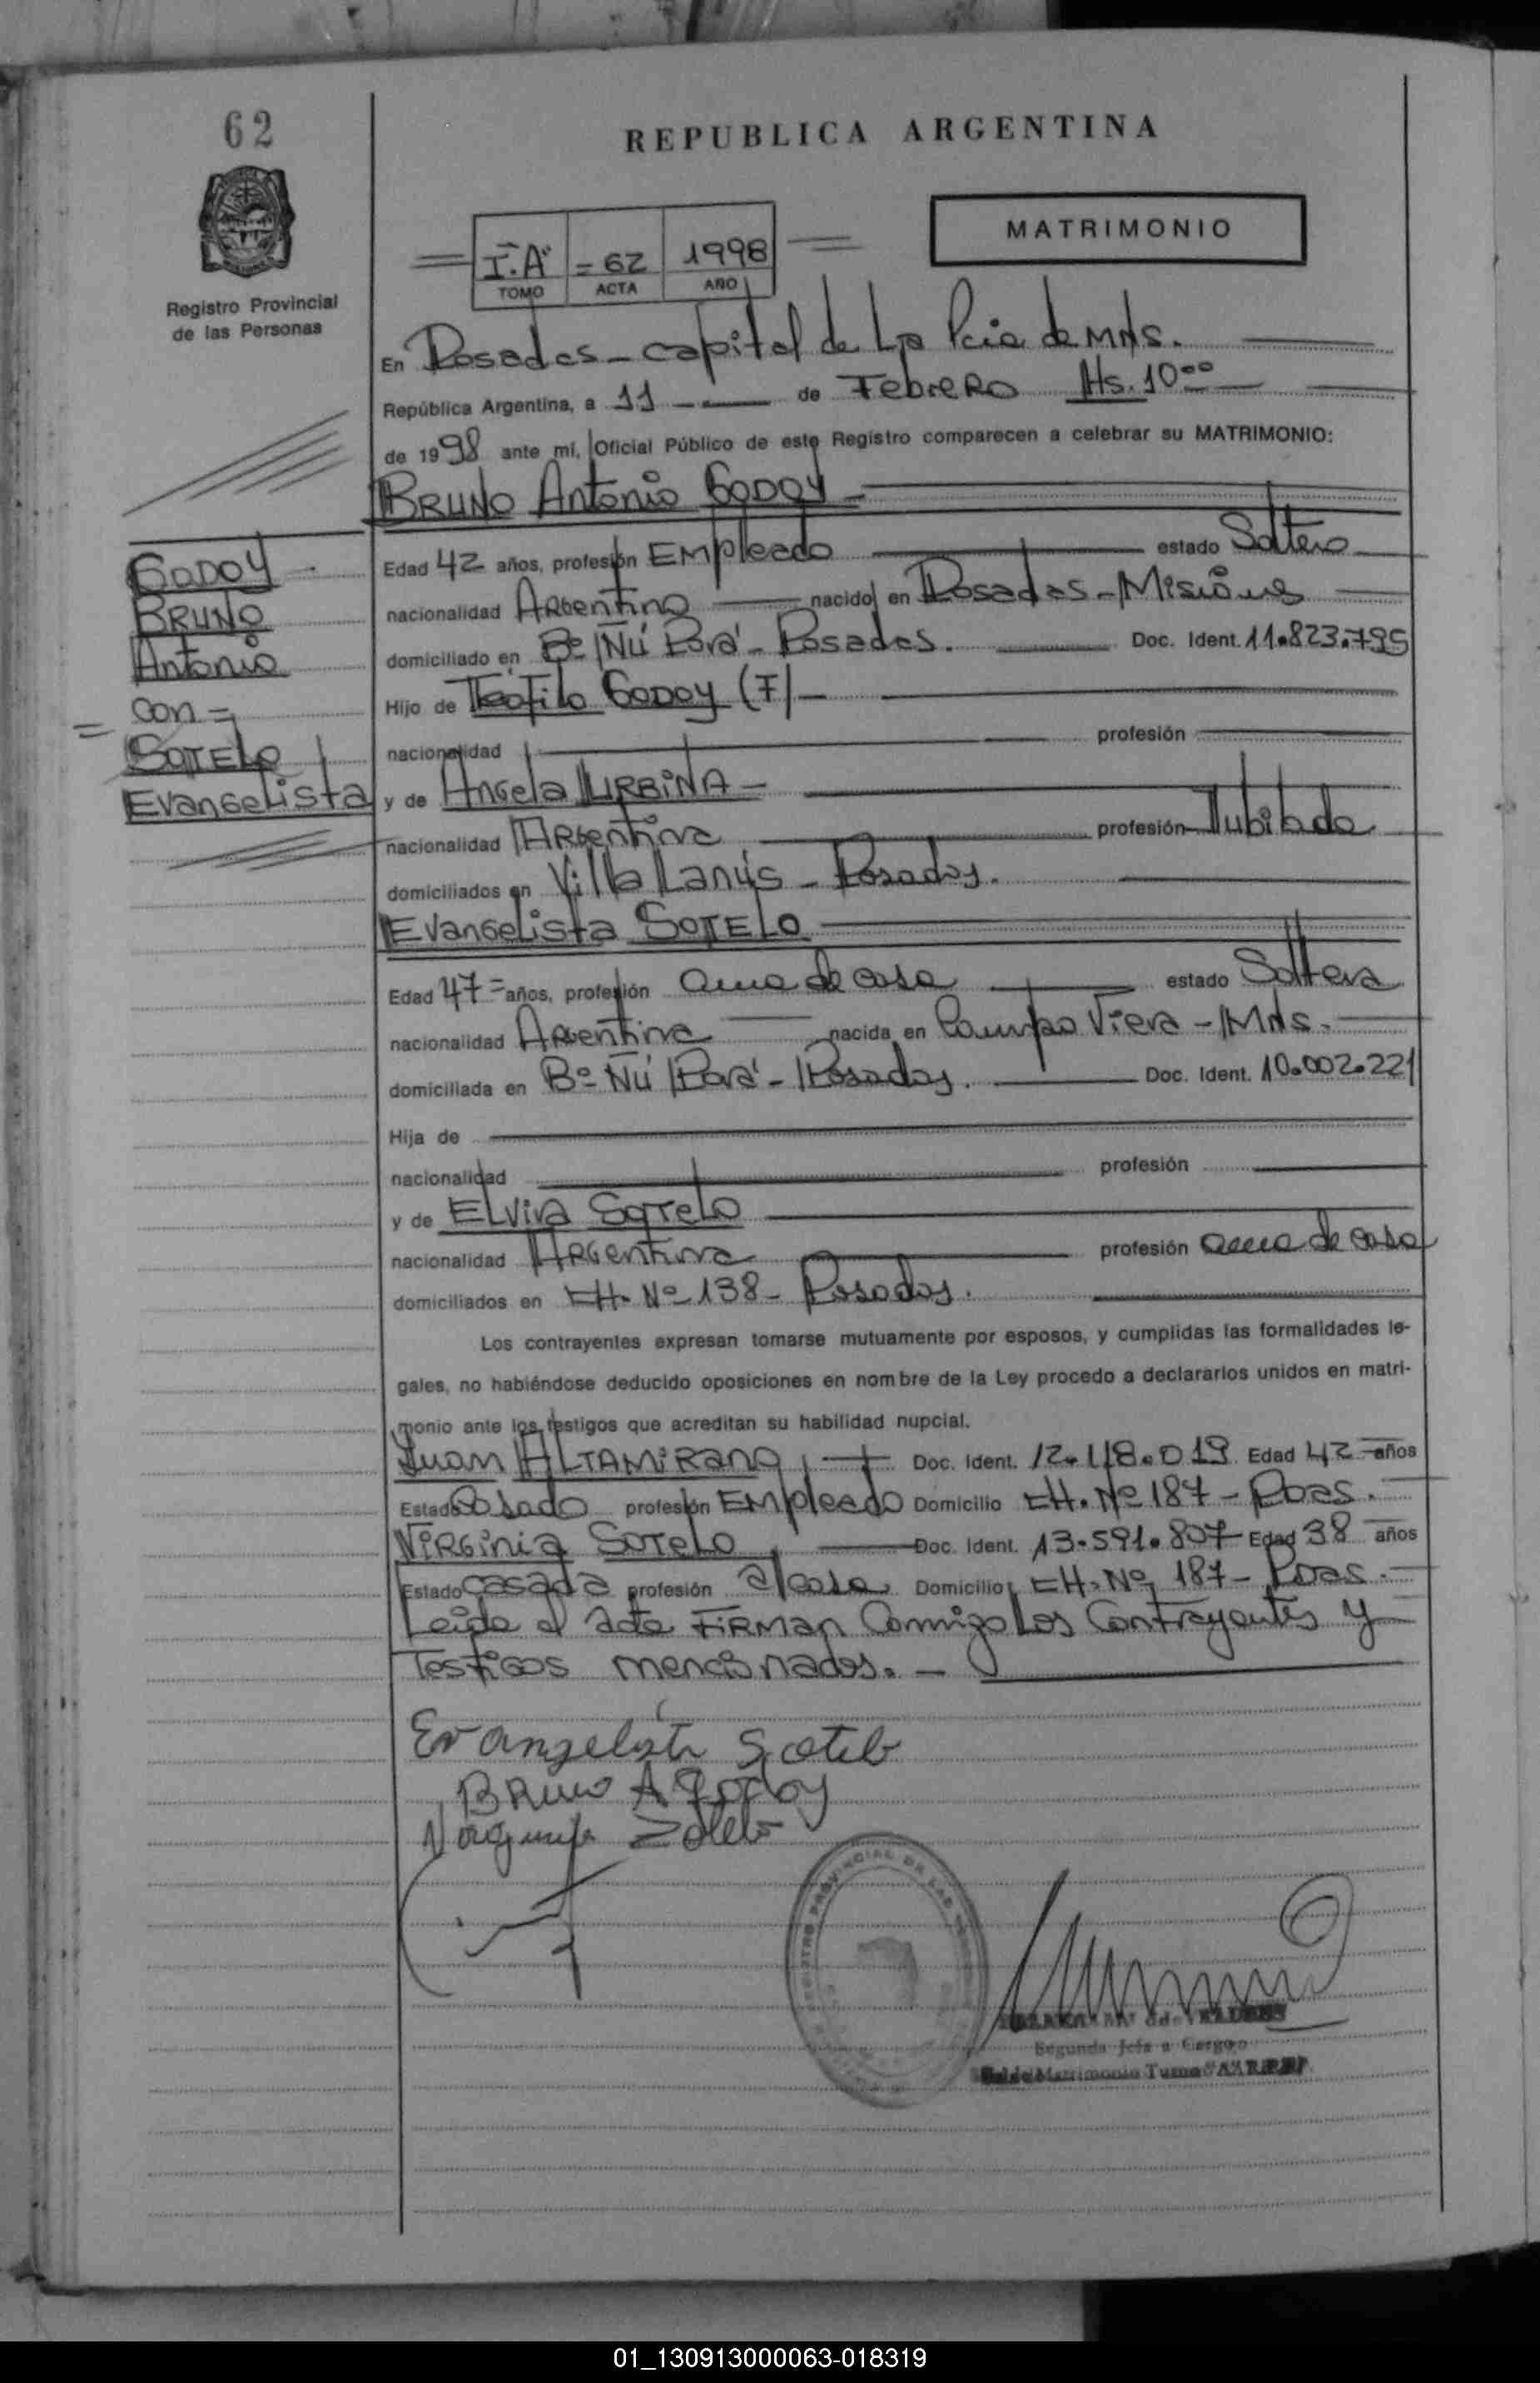 62
REPUBLICA ARGENTINA
MATRIMONIO
I.A 62 1998
TOMO ACTA AÑO
Registro Provincial
de las Personas
En Posadas - capital de La Pcia de MNS.
República Argentina, a 11 de Febrero Hs. 10⁰⁰
de 1998 ante mí, Oficial Público de este Registro comparecen a celebrar su MATRIMONIO:
BRUNO Antonio GODOY
GODOY
BRUNO
Antonio
con
SOTELO
Evangelista
Edad 42 años, profesión Empleado estado Soltero
nacionalidad Argentino nacido en Posadas - Misiones
domiciliado en Bº Ñú Porá - Posadas. Doc. Ident. 11.823.795
Hijo de Teófilo GODOY (F)
nacionalidad profesión
y de Angela URBINA
nacionalidad Argentina profesión Jubilada
domiciliados en Villa Lanús - Posadas.
Evangelista SOTELO
Edad 47 años, profesión ama de casa estado Soltera
nacionalidad Argentina nacida en Campo Viera - MNS.
domiciliada en Bº Ñú Porá - Posadas. Doc. Ident. 10.002.221
Hija de
nacionalidad profesión
y de Elvira Sotelo
nacionalidad Argentina profesión ama de casa
domiciliados en CH. Nº 138 - Posadas.
Los contrayentes expresan tomarse mutuamente por esposos, y cumplidas las formalidades le-
gales, no habiéndose deducido oposiciones en nombre de la Ley procedo a declararlos unidos en matri-
monio ante los testigos que acreditan su habilidad nupcial.
Juan ALTAMIRANO, Doc. Ident. 12.118.019 Edad 42 años
Estado Casado profesión Empleado Domicilio CH. Nº 187 - Pdas.
Virginia SOTELO, Doc. Ident. 13.591.807 Edad 38 años
Estado casada profesión a/casa Domicilio CH. Nº 187 - Pdas.
Leida el acta FIRMAN Conmigo Los Contrayentes y
Testigos mencionados.
Evangelista Sotelo
Bruno A Godoy
Zotelo
REGISTRO PROVINCIAL DE LAS
Segunda Jefa a Cargo
Matrimonio Turno "A"
01_130913000063-018319